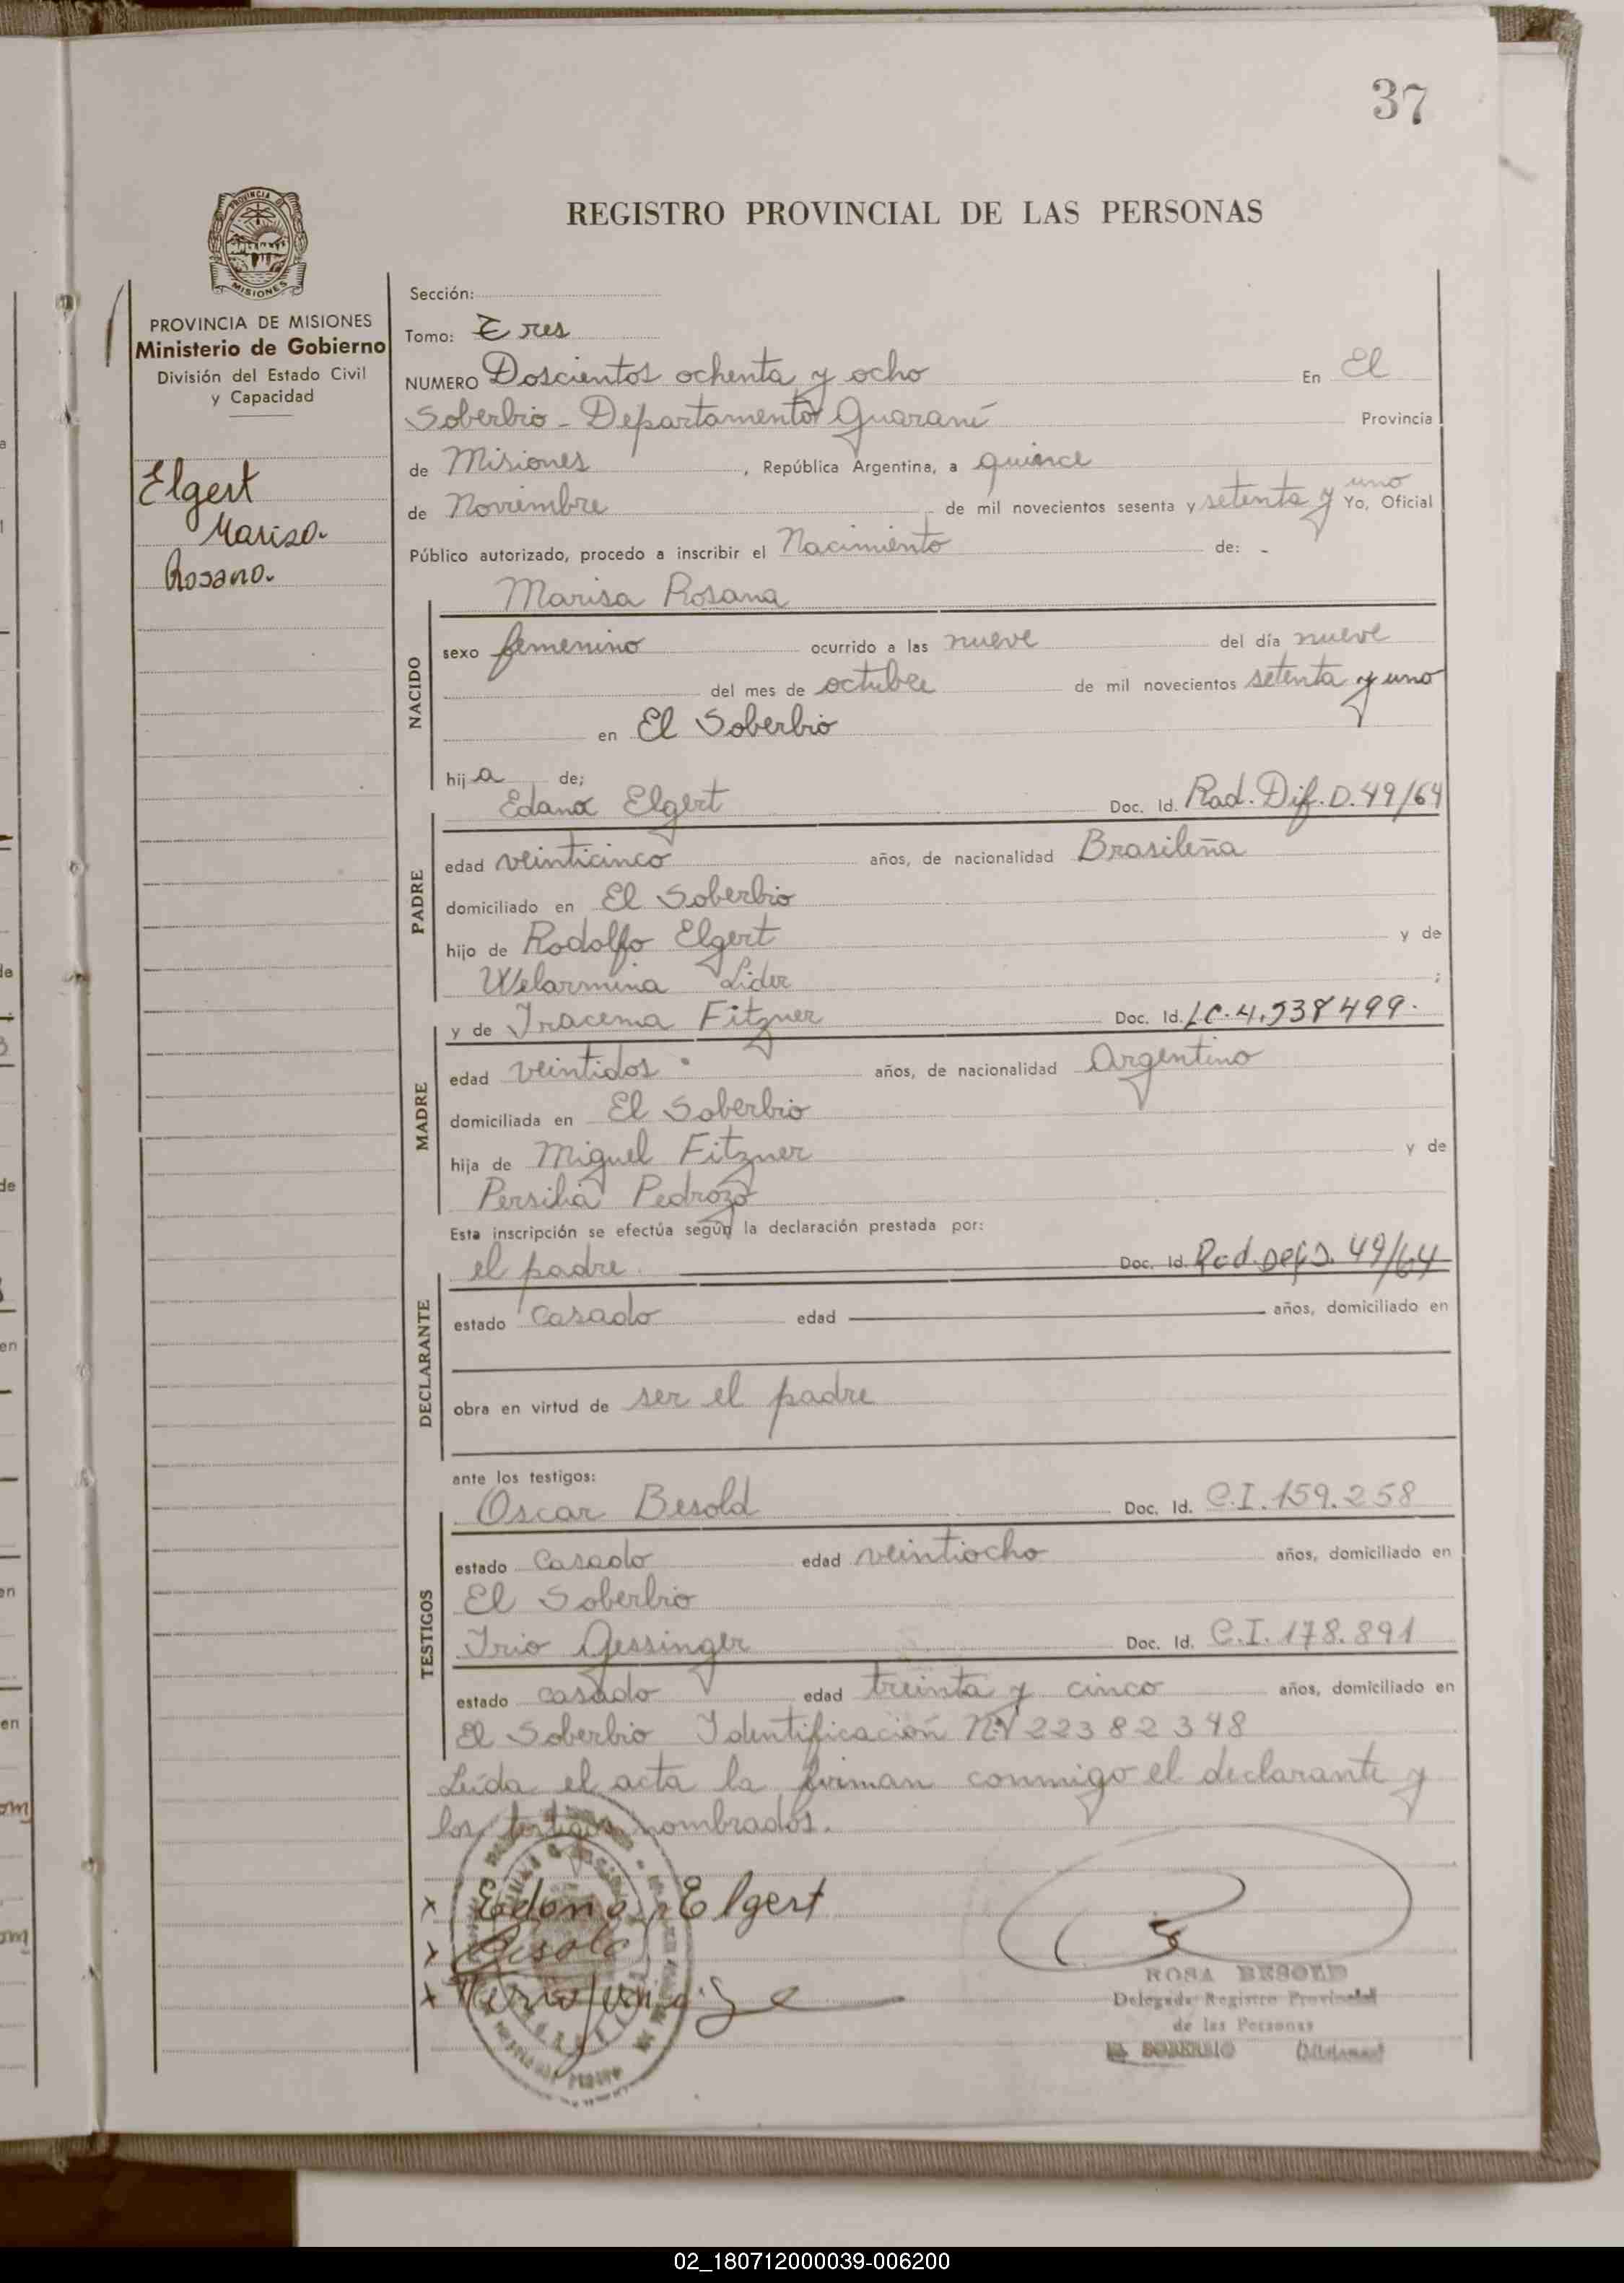 37
PROVINCIA DE
MISIONES
REGISTRO PROVINCIAL DE LAS PERSONAS
PROVINCIA DE MISIONES
Ministerio de Gobierno
División del Estado Civil
y Capacidad
Elgert
Marisa
Rosana
Sección:
Tomo: Tres
NUMERO Doscientos ochenta y ocho En El
Soberbio - Departamento Guaraní Provincia
de Misiones, República Argentina, a quince
de Noviembre de mil novecientos sesenta y setenta y uno Yo, Oficial
Público autorizado, procedo a inscribir el Nacimiento de: -
Marisa Rosana
NACIDO
sexo femenino ocurrido a las nueve del día nueve
del mes de octubre de mil novecientos setenta y uno
en El Soberbio
hija de;
Edana Elgert Doc. Id. Rad. Dif. D. 49/64
PADRE
edad veinticinco años, de nacionalidad Brasileña
domiciliado en El Soberbio
hijo de Rodolfo Elgert y de
Welarmina Lider ;
y de Iracema Fitzner Doc. Id. LC. 4.538499.
MADRE
edad veintidos años, de nacionalidad Argentino
domiciliada en El Soberbio
hija de Miguel Fitzner y de
Persilia Pedrozo
Esta inscripción se efectúa según la declaración prestada por:
el padre. Doc. Id. Rad. 49/64
DECLARANTE
estado casado edad años, domiciliado en
obra en virtud de ser el padre
ante los testigos:
Oscar Besold Doc. Id. C.I. 159.258
TESTIGOS
estado casado edad veintiocho años, domiciliado en
El Soberbio
Irio Gessinger Doc. Id. C.I. 178.891
estado casado edad treinta y cinco años, domiciliado en
El Soberbio Identificación Nº 22382348
Leída el acta la firman conmigo el declarante y
los testigos nombrados.
x Edona Elgert
x Besold
x
ROSA BESOLD
Delegada Registro Provincial
de las Personas
EL SOBERBIO (Misiones)
02_180712000039-006200